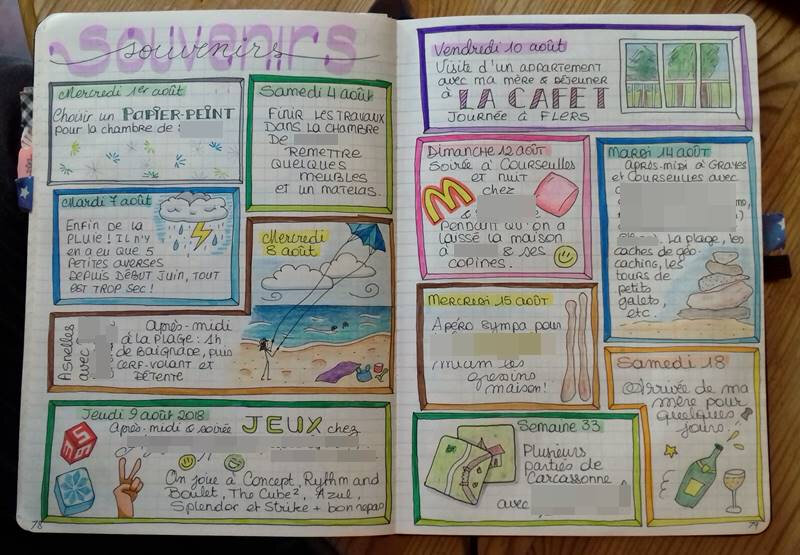 souvenirs
souvenirs
Mercredi 1er août
Choisir un PAPIER-PEINT
pour la chambre de
Samedi 4 août
FINIR LES TRAVAUX
DANS LA CHAMBRE
DE
REMETTRE
QUELQUES
MEUBLES
ET UN MATELAS.
Mardi 7 août
ENFIN DE LA
PLUIE! IL N'Y
EN A EU QUE 5
PETITES AVERSES
DEPUIS DÉBUT JUIN, TOUT
EST TROP SEC!
Mercredi
8 août
Asnelles
avec
Après-midi
à la PLAGE: 1h
de BAIGNADE, puis
CERF-VOLANT et
DÉTENTE
Jeudi 9 août 2018
Après-midi & soirée JEUX chez
On joue à Concept, Rythm and
Boulet, The Cube², Azul,
Splendor et Strike + bon repas
78
Vendredi 10 août
Visite d'un APPARTEMENT
avec ma mère & DÉJEUNER
à LA CAFET
JOURNÉE à FLERS
Dimanche 12 août
Soirée à Courseulles
et nuit
chez
&
PENDANT QU'ON A
LAISSÉ LA MAISON
à & SES
COPINES.
Mardi 14 août
APRÈS-MIDI à GRAYES
et COURSEULLES avec
. La plage, les
caches de géo-
caching, les
tours de
petits
galets,
etc.
Mercredi 15 août
Apéro sympa pour
Miam les
gressins
maison!
Samedi 18
Arrivée de ma
mère pour
quelques
jours!
Semaine 33
Plusieurs
parties de
Carcassonne
avec
79